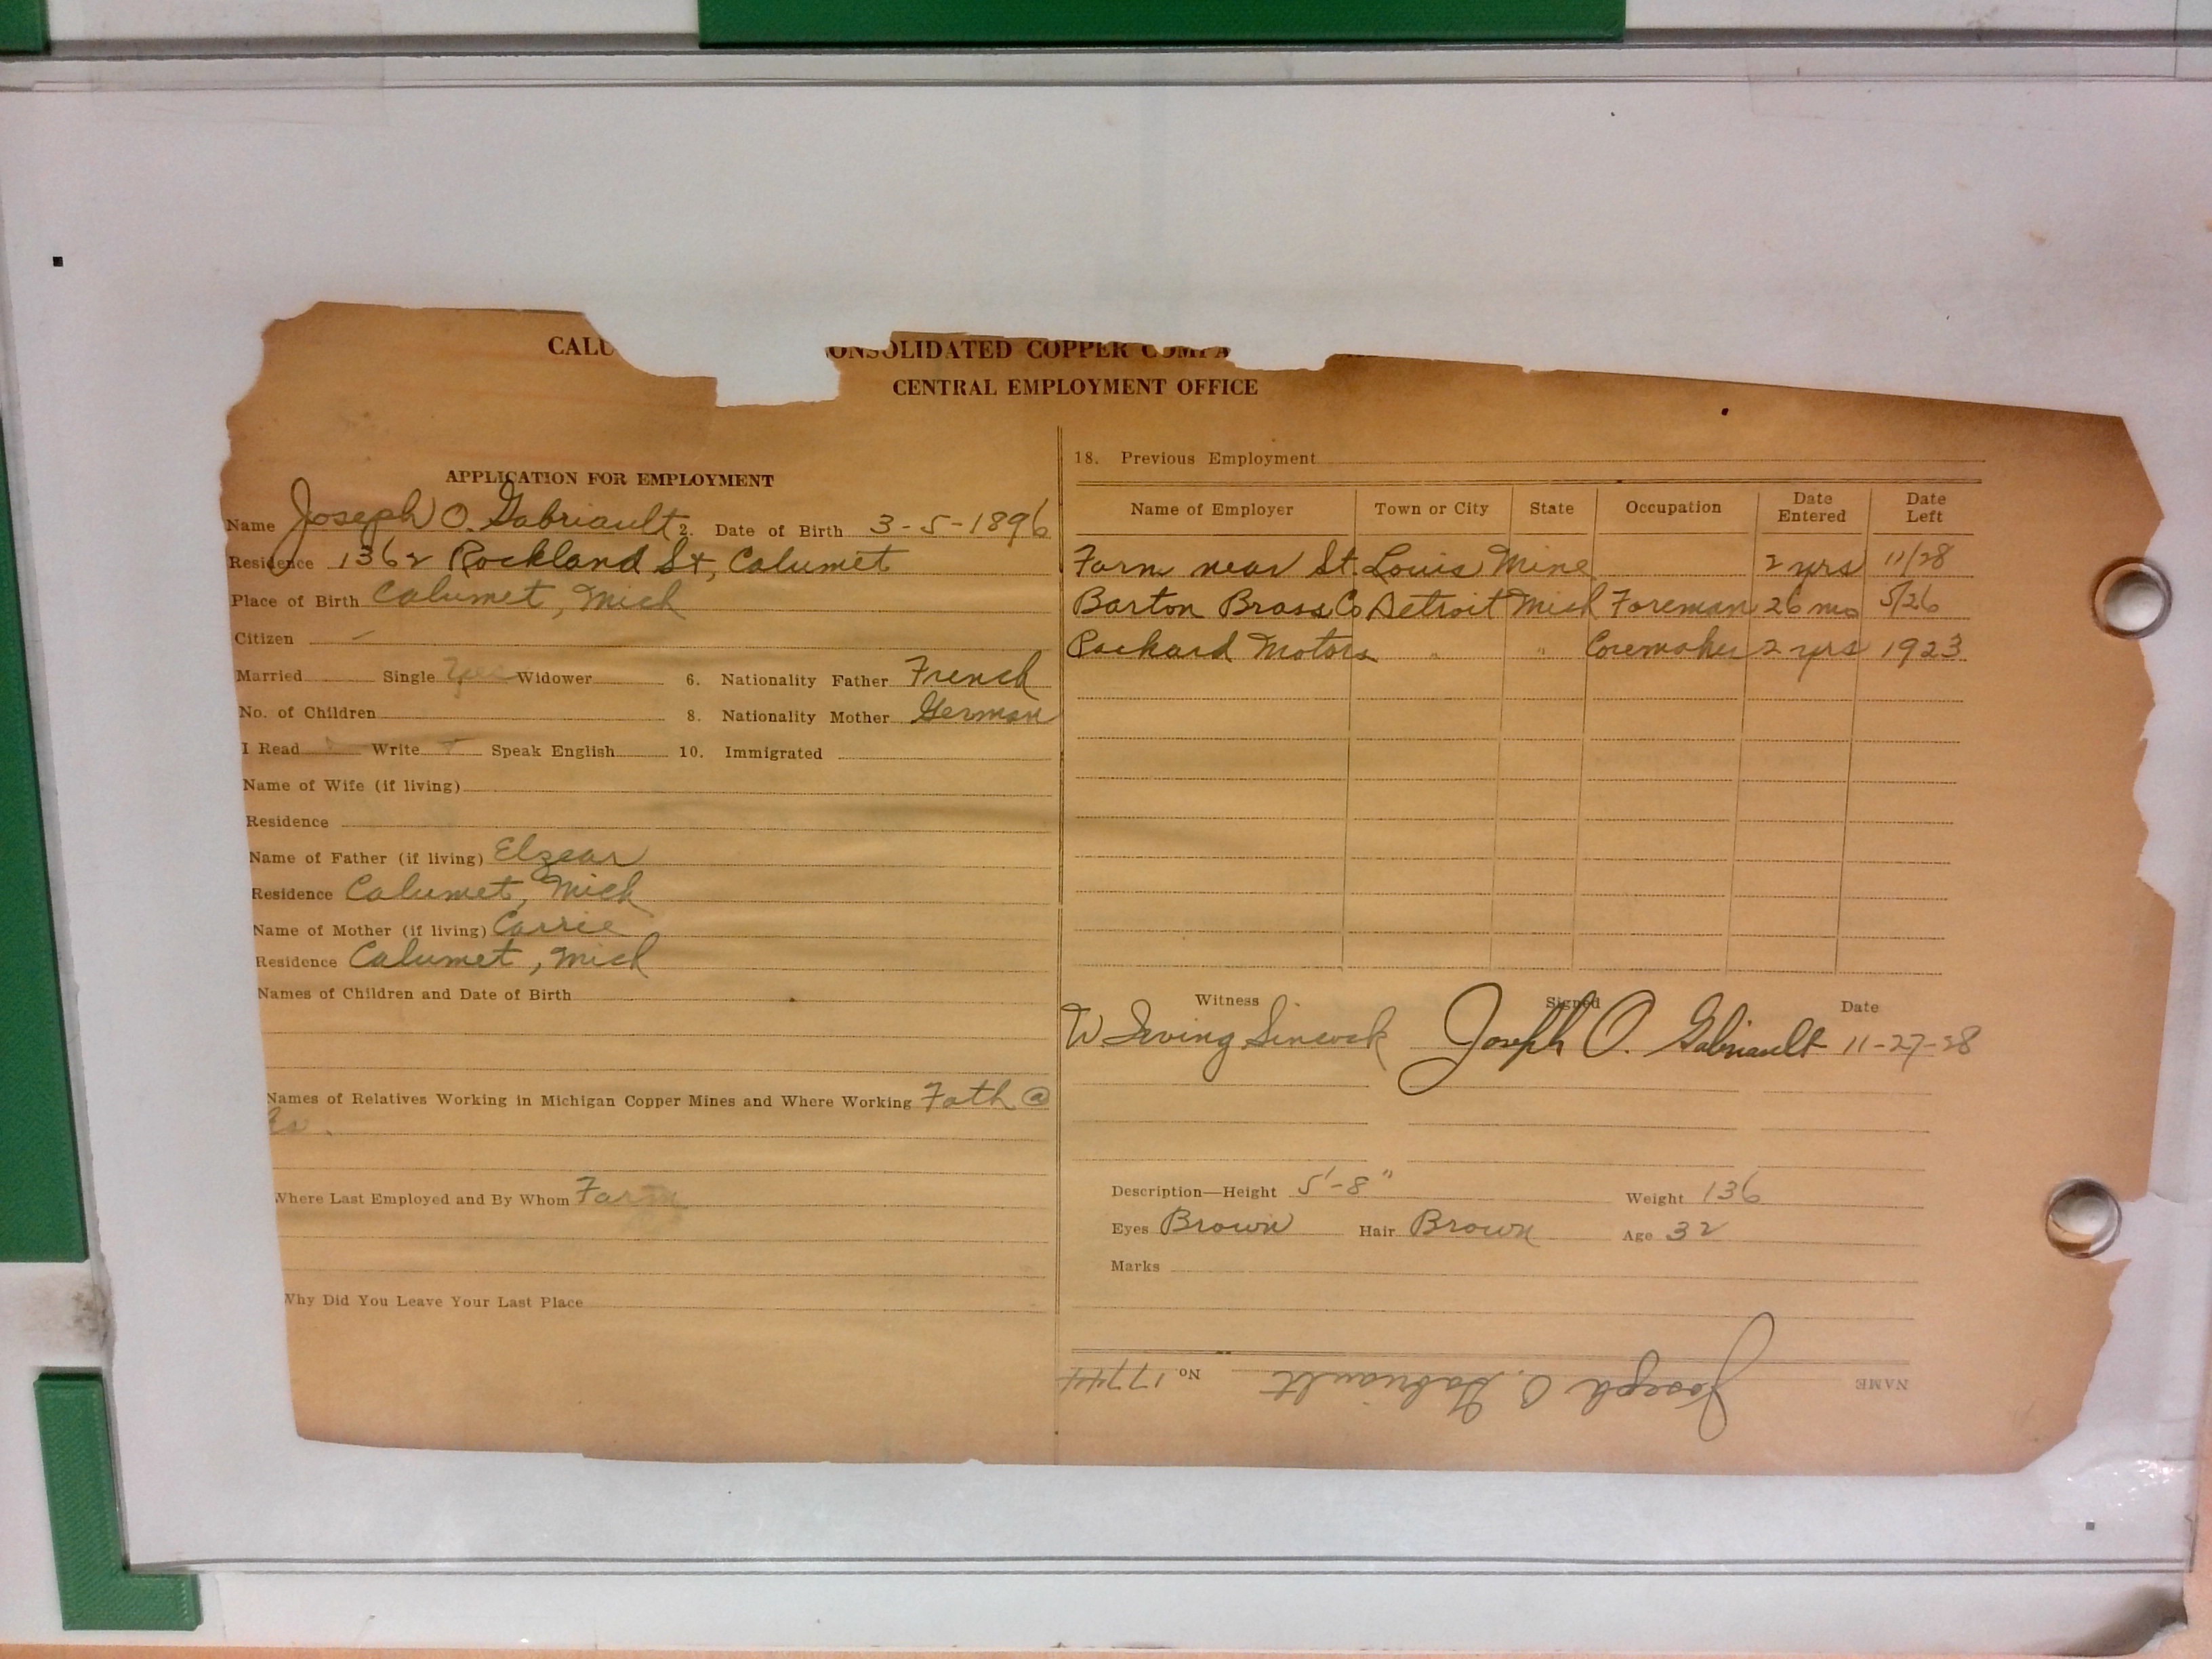 CALU ONSOLIDATED COPPER COMPA
CENTRAL EMPLOYMENT OFFICE
APPLICATION FOR EMPLOYMENT
Name Joseph O. Gabriault 2. Date of Birth 3-5-1896
Residence 1362 Rockland St, Calumet
Place of Birth Calumet, Mich
Citizen
Married Single Yes Widower 6. Nationality Father French
No. of Children 8. Nationality Mother German
I Read Write Speak English 10. Immigrated
Name of Wife (if living)
Residence
Name of Father (if living) Elzear
Residence Calumet, Mich
Name of Mother (if living) Carrie
Residence Calumet, Mich
Names of Children and Date of Birth
Names of Relatives Working in Michigan Copper Mines and Where Working Fath @
Where Last Employed and By Whom Farm
Why Did You Leave Your Last Place
18. Previous Employment
Name of Employer Town or City State Occupation Date Entered Date Left
Farm near St. Louis Mine 2 yrs 11/28
Barton Brass Co Detroit Mich Foreman 26 mo 5/26
Packard Motors " " Coremaker 2 yrs 1923
Witness Signed Date
W. Irving Joseph O. Gabriault 11-27-28
Description—Height 5'-8" Weight 136
Eyes Brown Hair Brown Age 32
Marks
NAME Joseph O. Gabriault No 17744